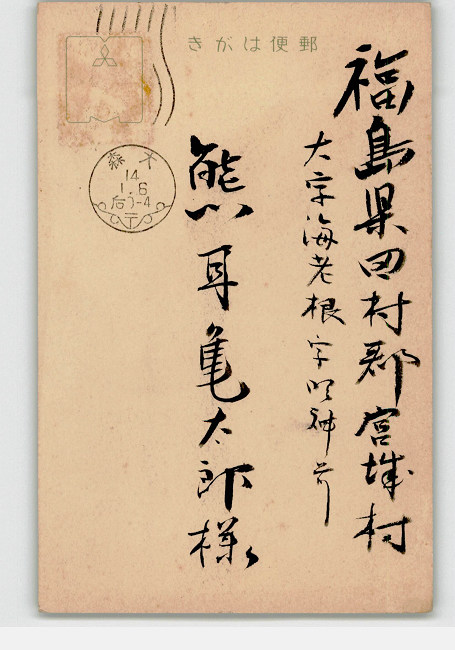 きがは便郵
福島県田村郡宮城村
大字海老根字明神前
熊耳亀太郎様
大森
14
1.6
后0-4